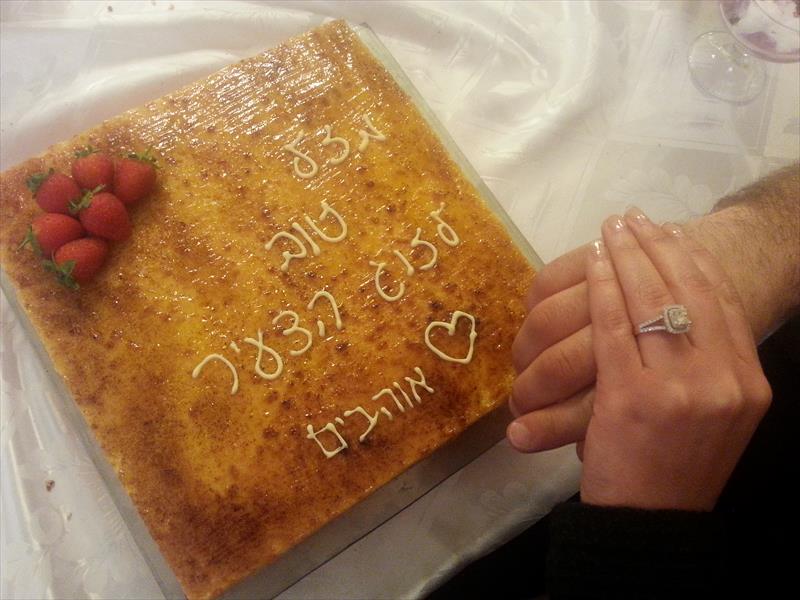 מזל
טוב
לזוג הצעיר
אוהבים